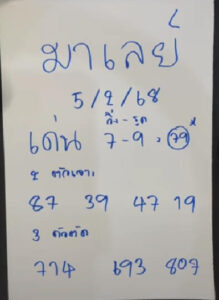 มาเลย์
5/2/68
วิ่ง-รูด
เด่น 7-9, 79 *
2 ตัวเจาะ
87 39 47 19
3 ตัวตัด
714 693 807